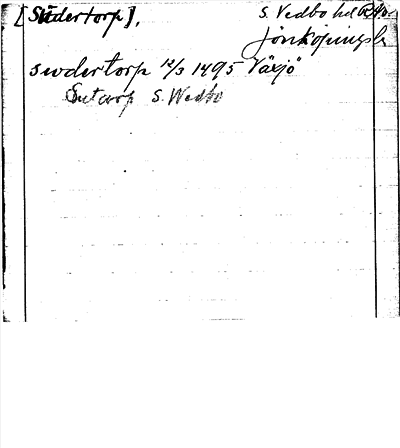 [Södertorp].
S. Vedbo hd
Jönköpings l.
swdertorp 12/3 1495 Växjö
Sutarp S. Wedbo